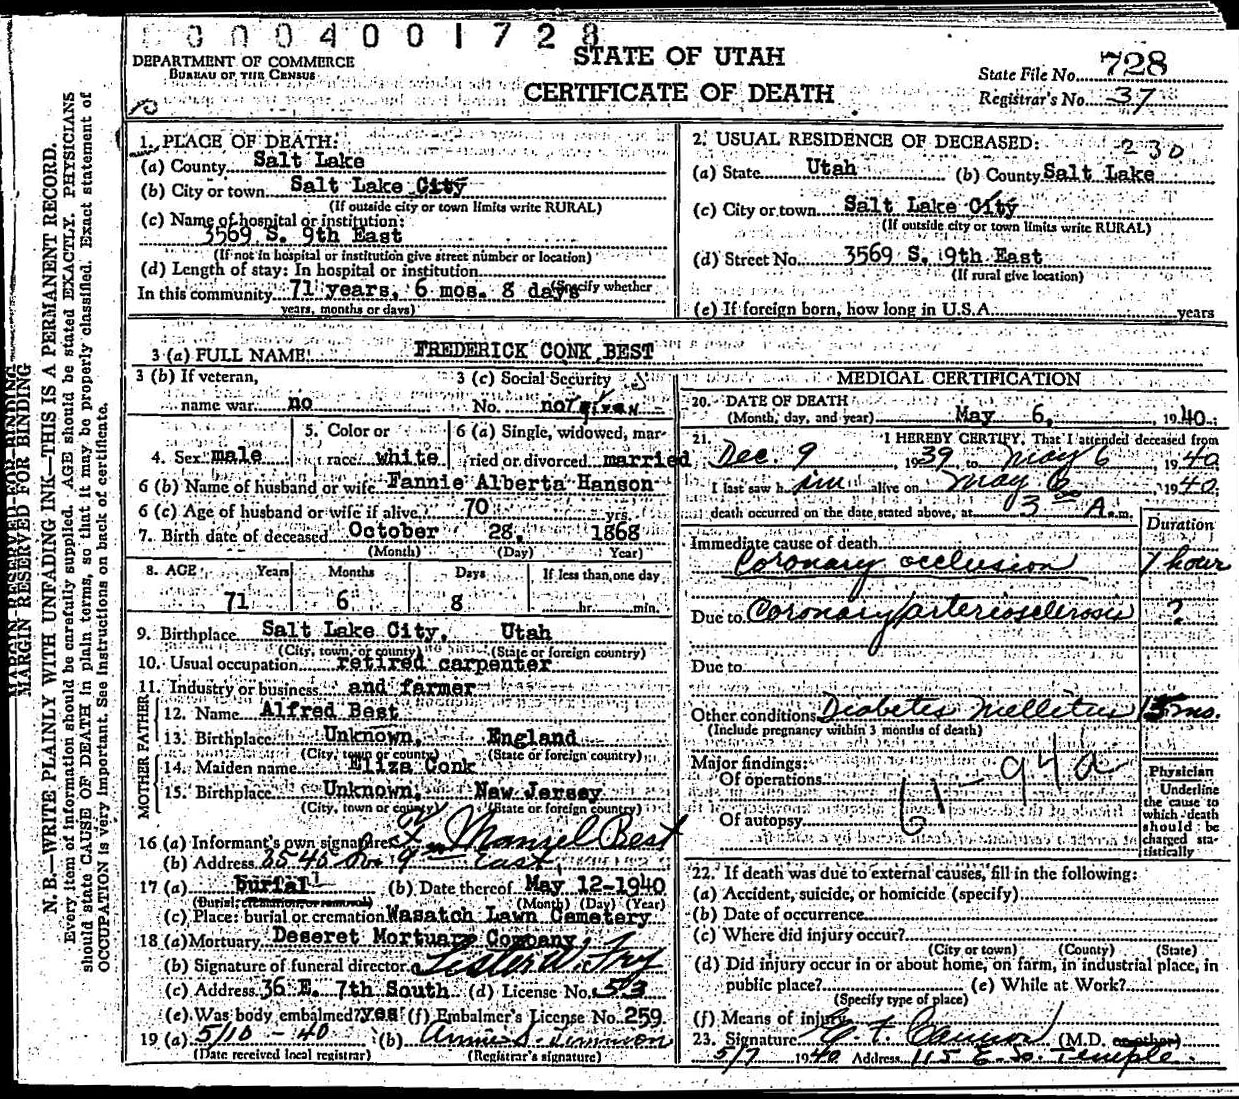 0004001728
DEPARTMENT OF COMMERCE
BUREAU OF THE CENSUS
STATE OF UTAH
CERTIFICATE OF DEATH
State File No. 728
Registrar's No. 37
MARGIN RESERVED FOR BINDING
N. B.—WRITE PLAINLY WITH UNFADING INK—THIS IS A PERMANENT RECORD.
Every item of information should be carefully supplied. AGE should be stated EXACTLY. PHYSICIANS
should state CAUSE OF DEATH in plain terms, so that it may be properly classified. Exact statement of
OCCUPATION is very important. See instructions on back of certificate.
1. PLACE OF DEATH:
(a) County Salt Lake
(b) City or town Salt Lake City
(If outside city or town limits write RURAL)
(c) Name of hospital or institution:
3569 S. 9th East
(If not in hospital or institution give street number or location)
(d) Length of stay: In hospital or institution
In this community 71 years, 6 mos. 8 days (Specify whether
years, months or days)
2. USUAL RESIDENCE OF DECEASED: 230
(a) State Utah (b) County Salt Lake
(c) City or town Salt Lake City
(If outside city or town limits write RURAL)
(d) Street No. 3569 S. 9th East
(If rural give location)
(e) If foreign born, how long in U.S.A. years
3 (a) FULL NAME FREDERICK CONK BEST
3 (b) If veteran, name war no
3 (c) Social Security No. not given
4. Sex male
5. Color or race white
6 (a) Single, widowed, married or divorced married
6 (b) Name of husband or wife Fannie Alberta Hanson
6 (c) Age of husband or wife if alive 70 yrs.
7. Birth date of deceased October 28, 1868
(Month) (Day) Year)
8. AGE Years Months Days If less than one day
71 6 8 hr. min.
9. Birthplace Salt Lake City, Utah
(City, town, or county) (State or foreign country)
10. Usual occupation retired carpenter
11. Industry or business and farmer
FATHER
12. Name Alfred Best
13. Birthplace Unknown, England
(City, town or county) (State or foreign country)
MOTHER
14. Maiden name Eliza Conk
15. Birthplace Unknown, New Jersey
(City, town or county) (State or foreign country)
16 (a) Informant's own signature Mansel Best
(b) Address 3545 So. 9 East
17 (a) burial (b) Date thereof May 12-1940
(Burial, cremation, or removal) (Month) (Day) (Year)
(c) Place: burial or cremation Wasatch Lawn Cemetery
18 (a) Mortuary Deseret Mortuary Company
(b) Signature of funeral director Lester W. Fry
(c) Address 36 E. 7th South (d) License No. 53
(e) Was body embalmed? yes (f) Embalmer's License No. 259
19 (a) 5/10-40 (b) Annie S.
(Date received local registrar) (Registrar's signature)
MEDICAL CERTIFICATION
20. DATE OF DEATH
(Month, day, and year) May 6, 1940.
21. I HEREBY CERTIFY, That I attended deceased from
Dec. 9 1939 to May 6 1940
I last saw him alive on May 6, 1940;
death occurred on the date stated above, at 3 00 A.m.
Duration
Immediate cause of death
Coronary occlusion 1 hour
Due to Coronary arteriosclerosis ?
Due to
Other conditions Diabetes Mellitus 15 mo.
(Include pregnancy within 3 months of death)
Major findings:
Of operations
Of autopsy
61-94a
Physician
Underline
the cause to
which death
should be
charged sta-
tistically
22. If death was due to external causes, fill in the following:
(a) Accident, suicide, or homicide (specify)
(b) Date of occurrence
(c) Where did injury occur?
(City or town) (County) (State)
(d) Did injury occur in or about home, on farm, in industrial place, in
public place? (e) While at Work?
(Specify type of place)
(f) Means of injury
23. Signature (M.D. or other)
5/7 1940 Address 115 E. So. Temple